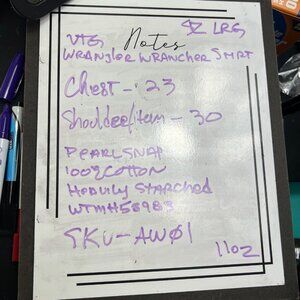 Notes
VTG SZ LRG
WRANGLER WRANCHER SHRT
Chest - 23
Shoulder/Hem - 30
PEARL SNAP
100% COTTON
HEAVILY STARCHED
WTMH58983
SKU - AW01
11OZ